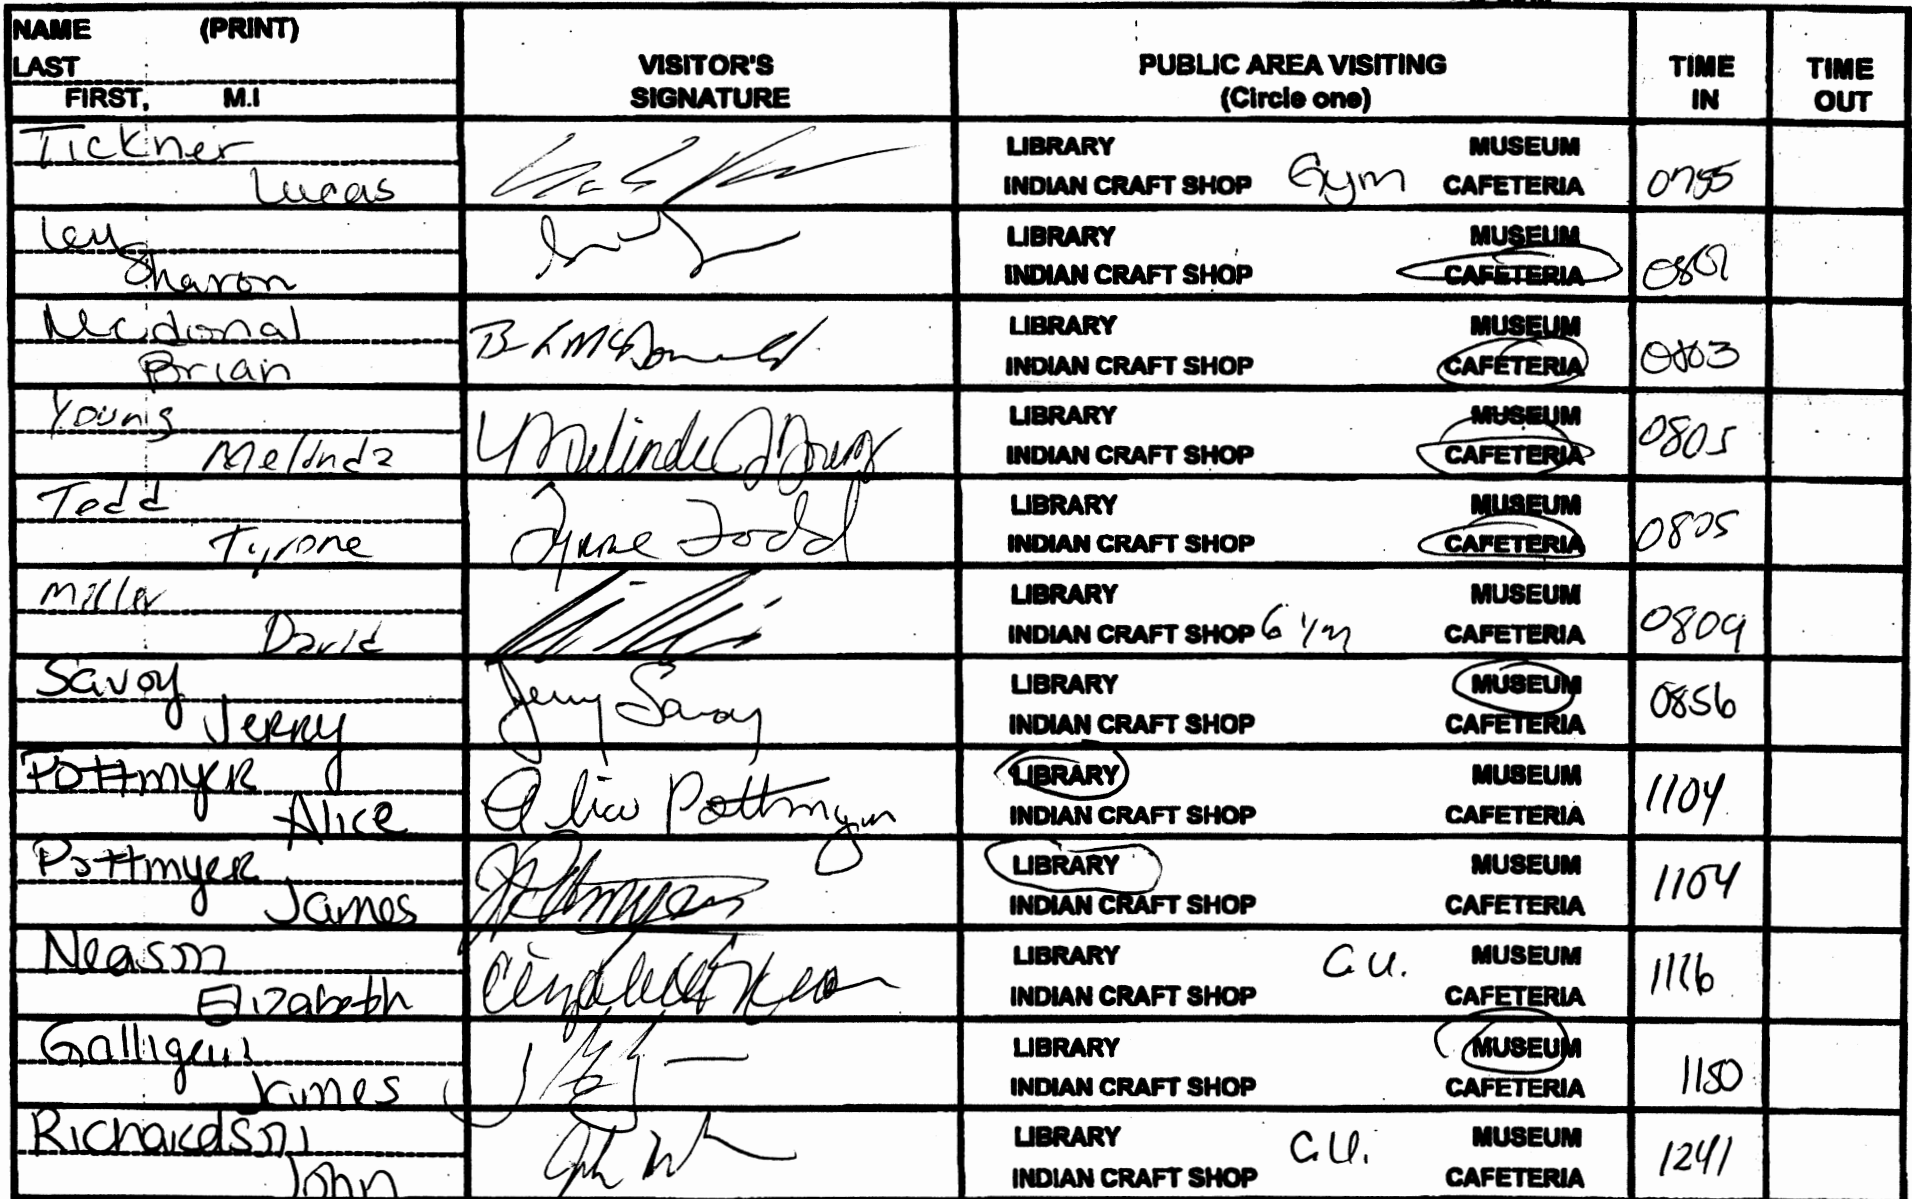 NAME (PRINT)
LAST
FIRST, M.I
VISITOR'S
SIGNATURE
PUBLIC AREA VISITING
(Circle one)
TIME
IN
TIME
OUT
Tickner
Lucas
LIBRARY MUSEUM
INDIAN CRAFT SHOP Gym CAFETERIA
0755
Sharon
LIBRARY MUSEUM
INDIAN CRAFT SHOP CAFETERIA
Mcdonal
Brian
B McDonald
LIBRARY MUSEUM
INDIAN CRAFT SHOP CAFETERIA
0803
Young
Melinda
Melinda J Young
LIBRARY MUSEUM
INDIAN CRAFT SHOP CAFETERIA
0805
Todd
Tyrone
Tyrone Todd
LIBRARY MUSEUM
INDIAN CRAFT SHOP CAFETERIA
0805
Miller
David
LIBRARY MUSEUM
INDIAN CRAFT SHOP Gym CAFETERIA
0809
Savoy
Jerry
Jerry Savoy
LIBRARY MUSEUM
INDIAN CRAFT SHOP CAFETERIA
0856
Pottmyer
Alice
Alice Pottmyer
LIBRARY MUSEUM
INDIAN CRAFT SHOP CAFETERIA
1104
Pottmyer
James
LIBRARY MUSEUM
INDIAN CRAFT SHOP CAFETERIA
1104
Neason
Elizabeth
Elizabeth Neason
LIBRARY C.U. MUSEUM
INDIAN CRAFT SHOP CAFETERIA
1116
James
LIBRARY MUSEUM
INDIAN CRAFT SHOP CAFETERIA
1150
Richardson
John
LIBRARY C.U. MUSEUM
INDIAN CRAFT SHOP CAFETERIA
1241